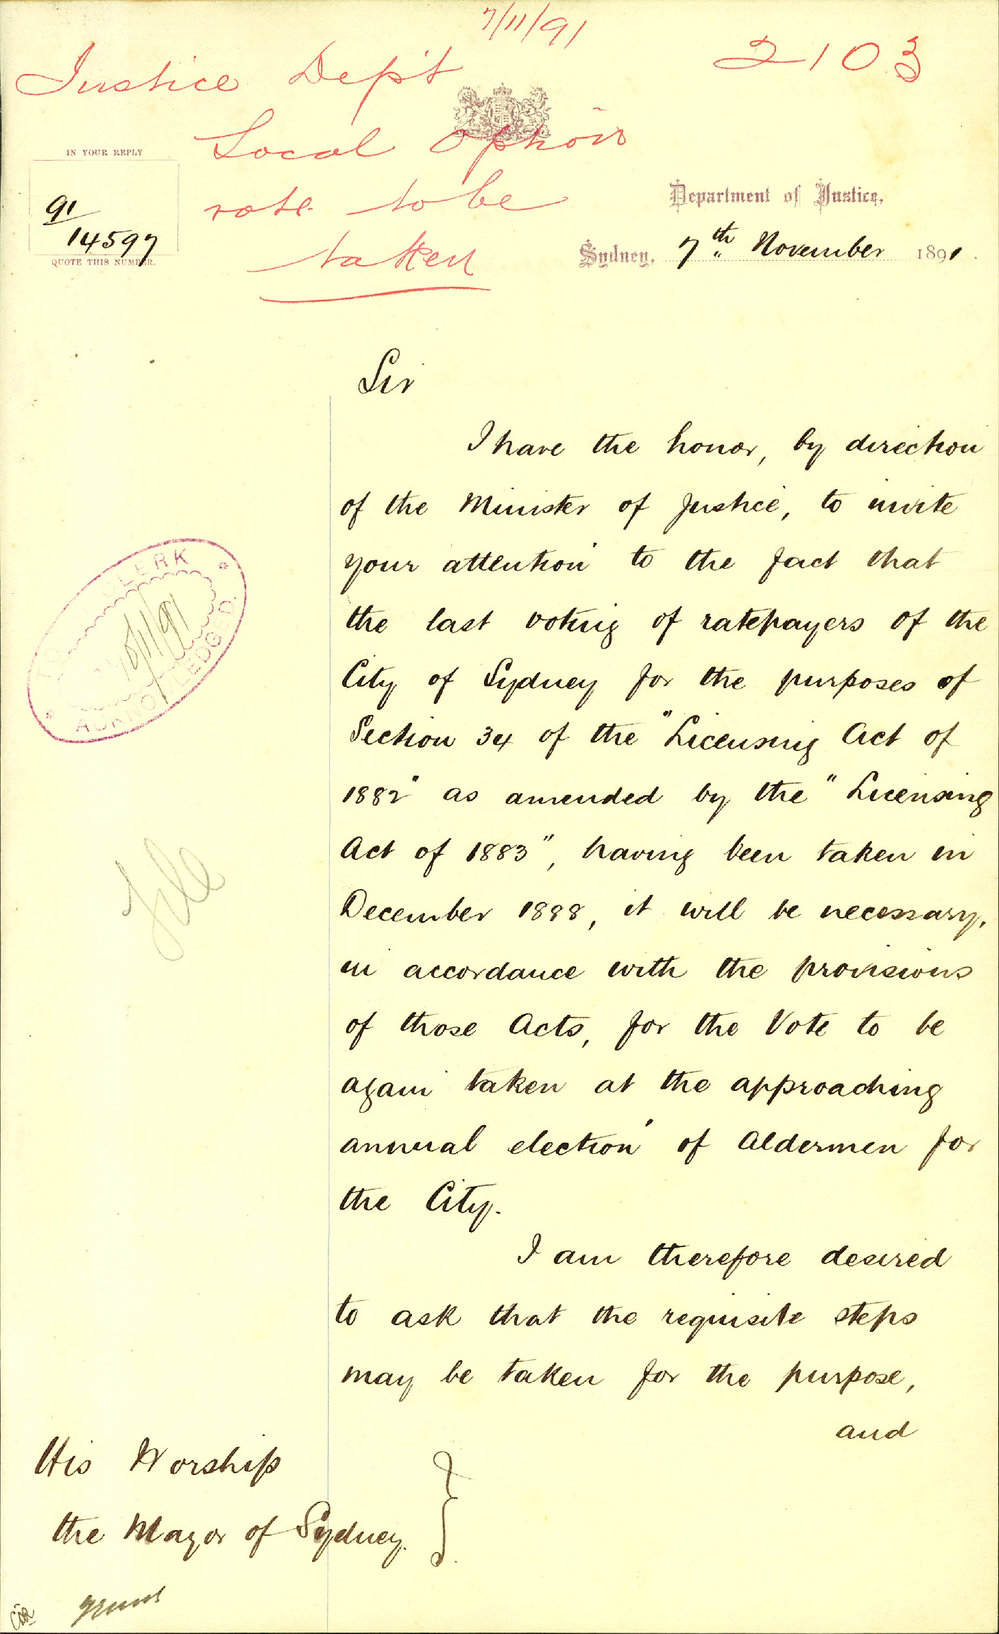 7/11/91
2103
Justice Dep't
Local Option
vote to be
taken
IN YOUR REPLY
91
14597
QUOTE THIS NUMBER.
Department of Justice,
Sydney, 7th November 1891.
Sir
I have the honor, by direction
of the Minister of Justice, to invite
your attention to the fact that
the last voting of ratepayers of the
City of Sydney for the purposes of
Section 34 of the "Licensing Act of
1882" as amended by the "Licensing
Act of 1883", having been taken in
December 1888, it will be necessary,
in accordance with the provisions
of those Acts, for the Vote to be
again taken at the approaching
annual election of Aldermen for
the City.
I am therefore desired
to ask that the requisite steps
may be taken for the purpose,
and
CLERK
/11/91
ACKNOWLEDGED.
His Worship
the Mayor of Sydney.